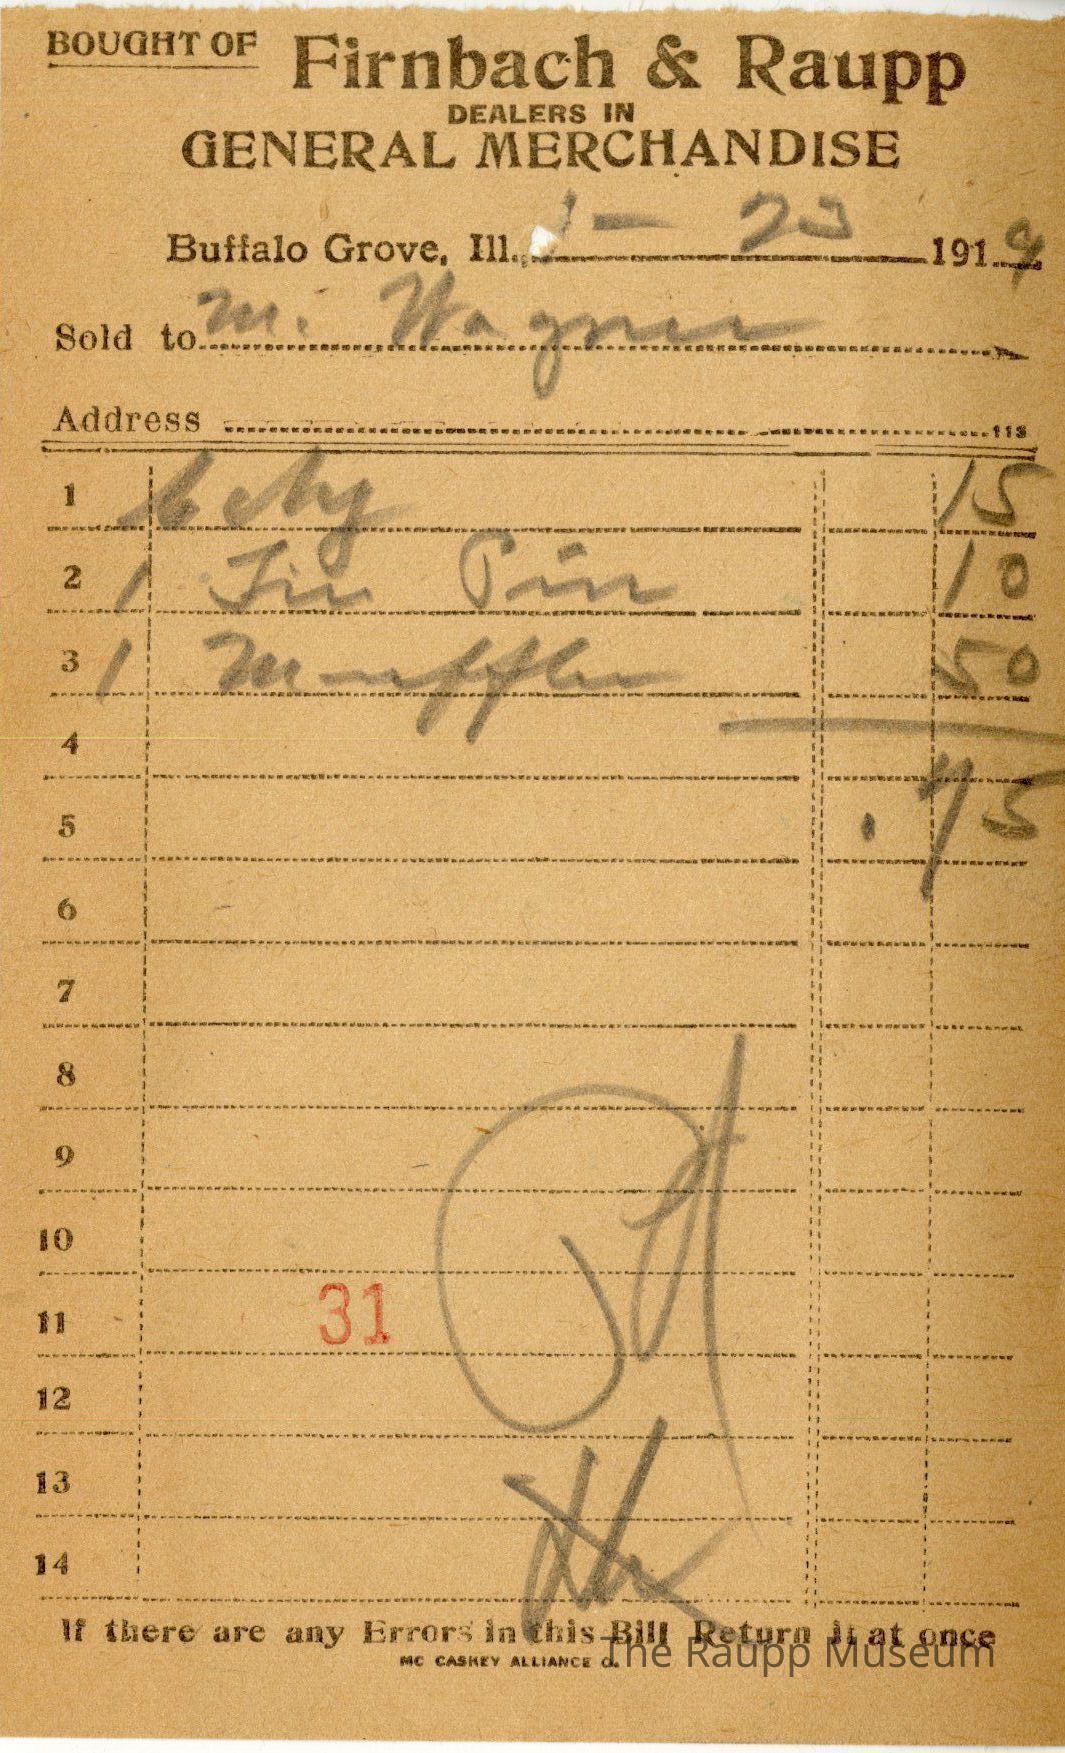 BOUGHT OF Firnbach & Raupp
DEALERS IN
GENERAL MERCHANDISE
Buffalo Grove, Ill. 1 - 23 1919
Sold to M. Wagner
Address
113
1 15
2 1 Tie Pin 10
3 1 Muffler 50
4
5 .75
6
7
8
9
10
11 31
12
13
14
If there are any Errors in this Bill Return it at once
MC CASKEY ALLIANCE O.
The Raupp Museum